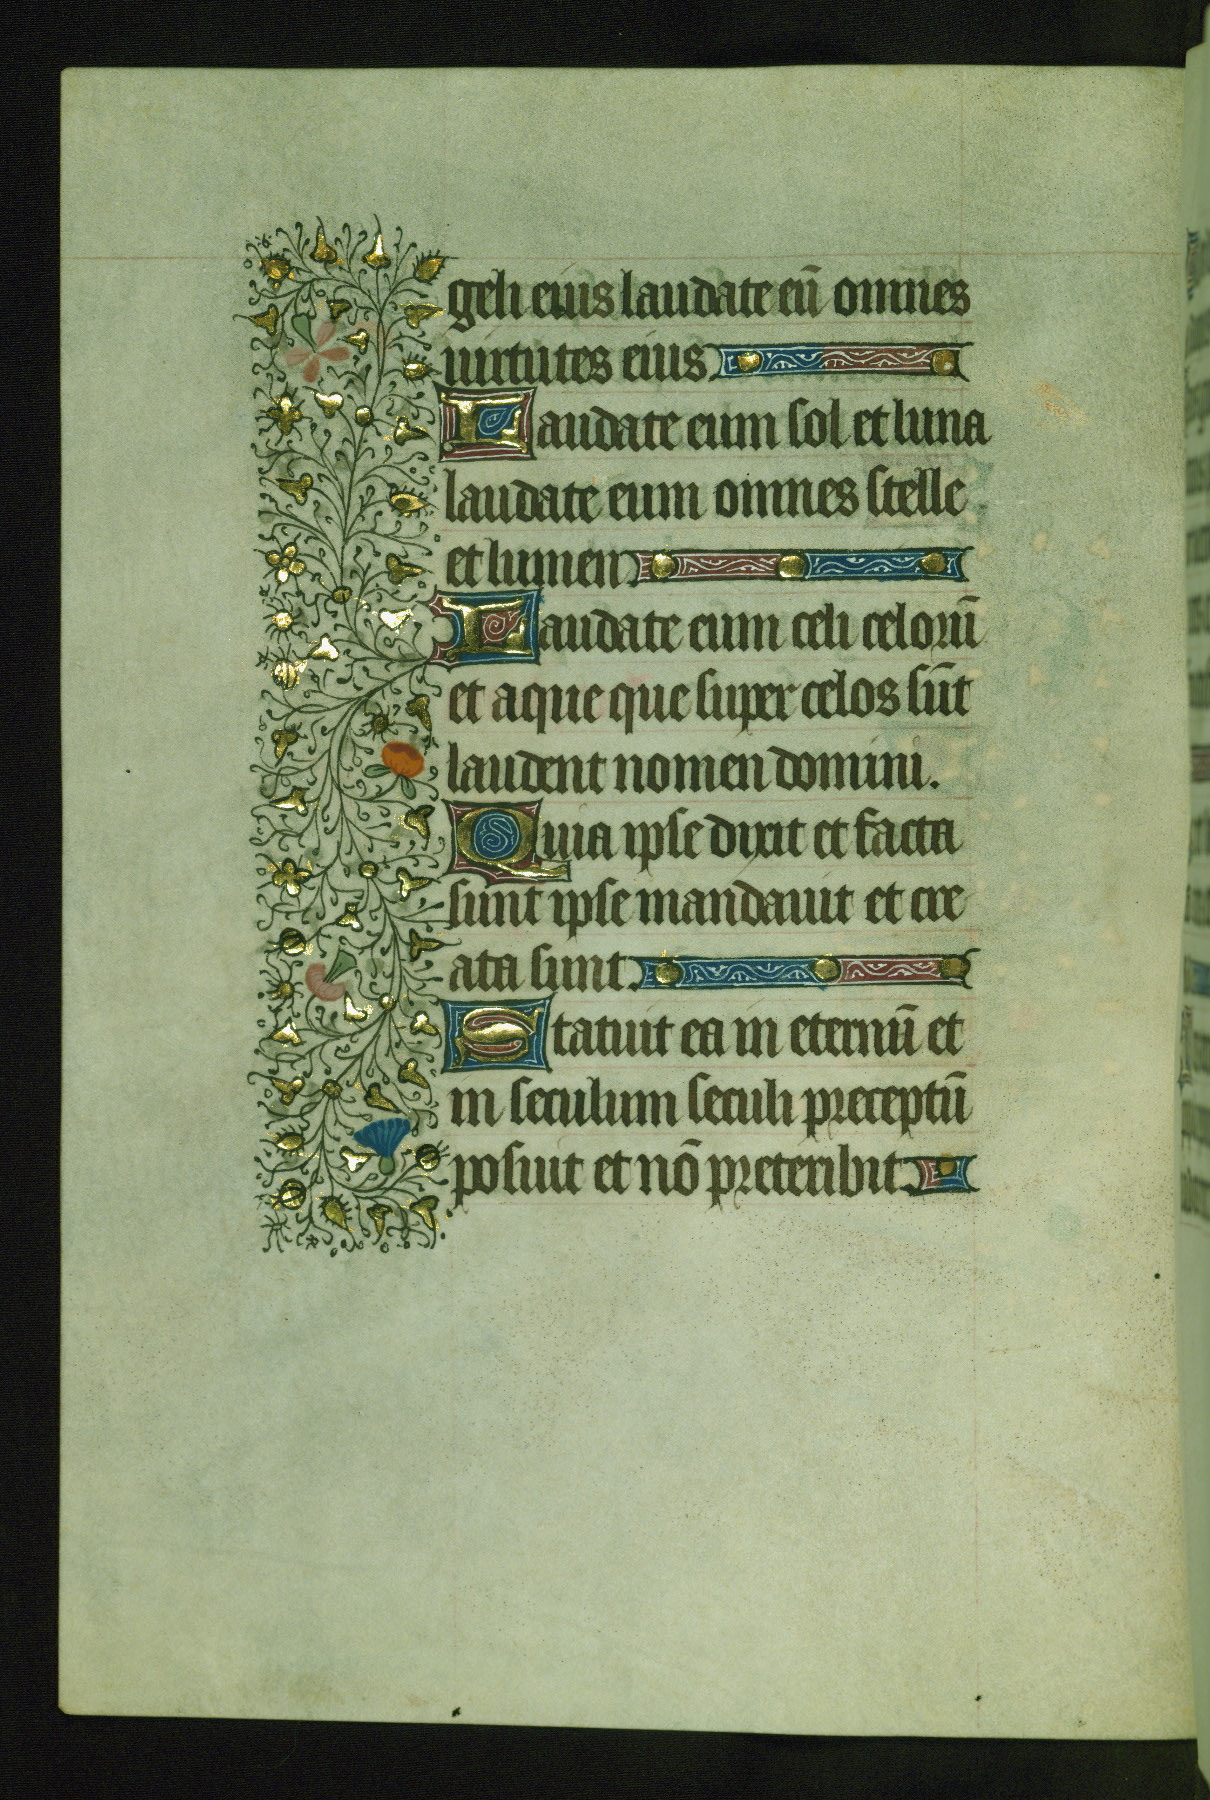 geli eius laudate eū omnes
uirtutes eius.
Laudate eum sol et luna
laudate eum omnes stelle
et lumen.
Laudate eum celi celorū
et aque que super celos sūt
laudent nomen domini.
Quia ipse dixit et facta
sunt ipse mandauit et cre
ata sunt.
Statuit ea in eternū et
in seculum seculi preceptū
posuit et nō preteribit.